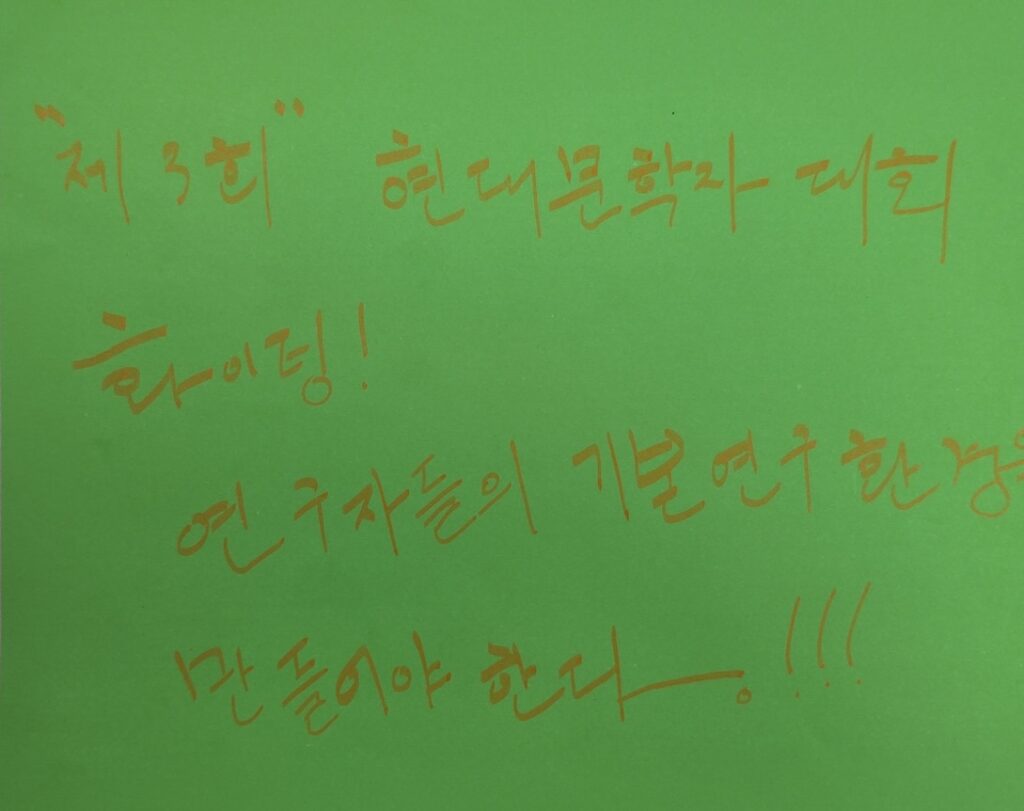 "제3회" 현대문학자 대회
화이팅!
연구자들의 기본연구환경을
만들어야 한다.!!!